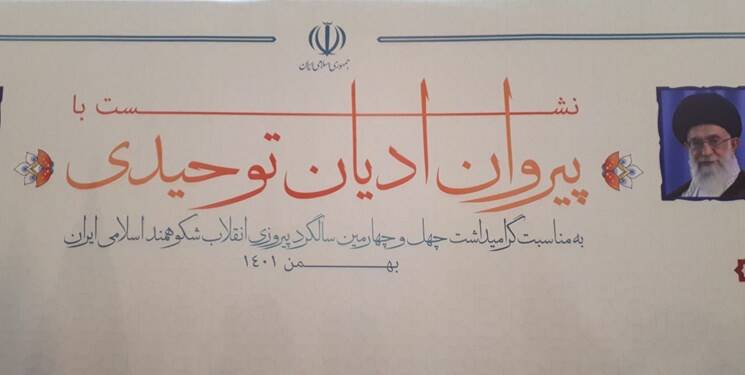 جمهوری اسلامی ایران
نشست با
پیروان ادیان توحیدی
به مناسبت گرامیداشت چهل و چهارمین سالگرد پیروزی انقلاب شکوهمند اسلامی ایران
بهمن ۱۴۰۱